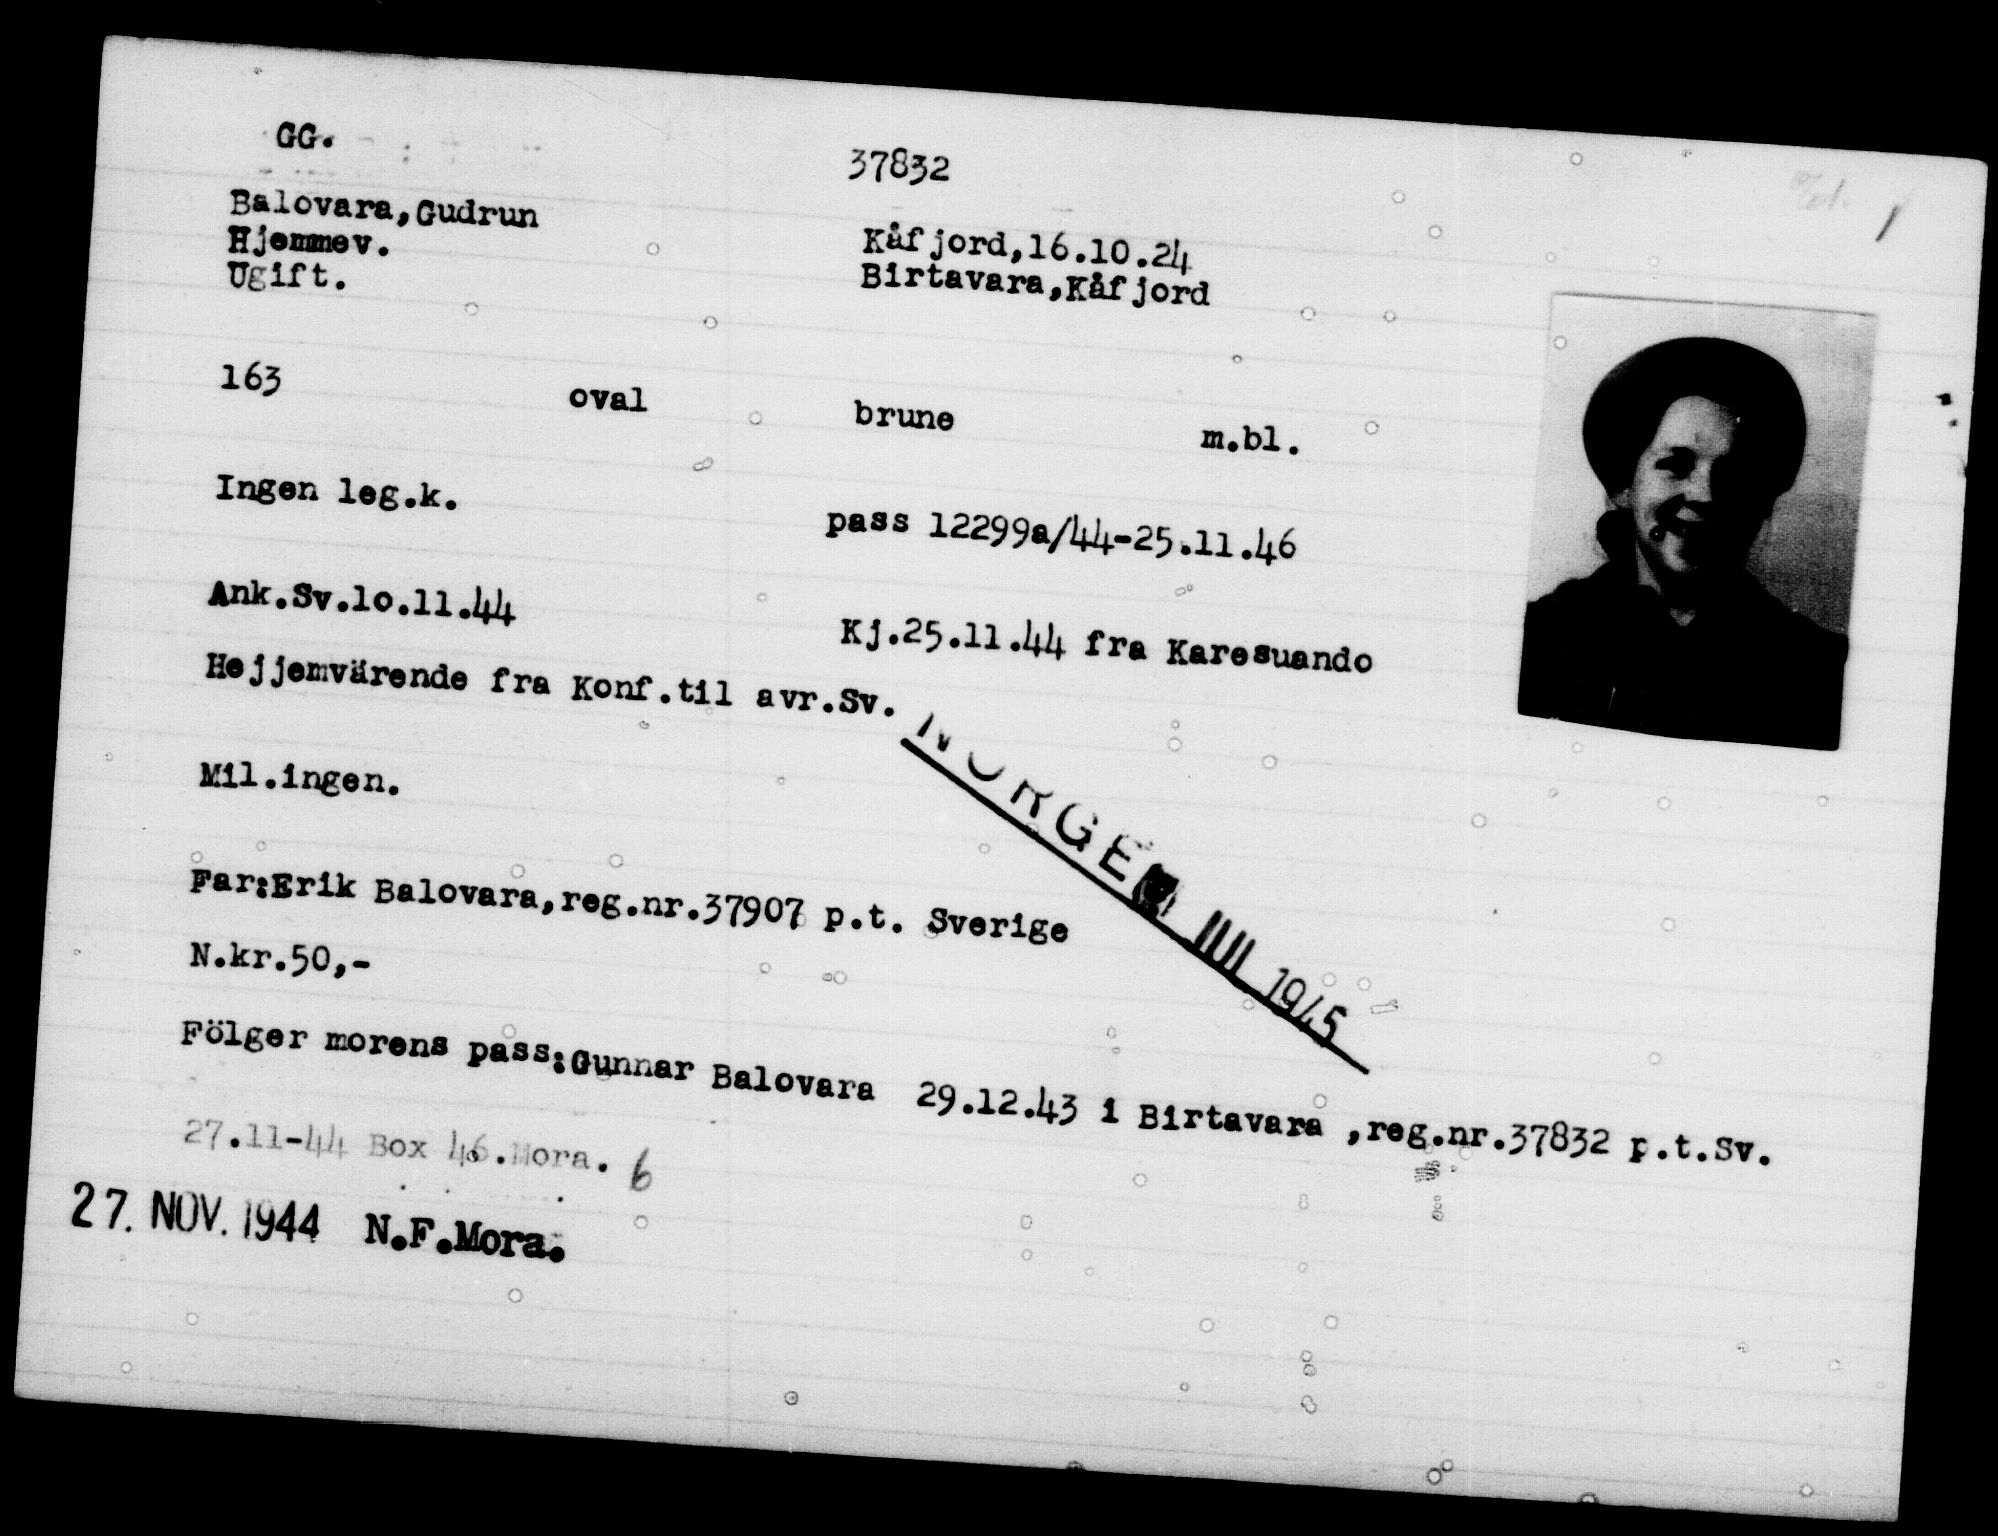 GG. 37832
Balovara,Gudrun Kåfjord,16.10.24
Hjemmev. Birtavara,Kåfjord
Ugift.
163 oval brune m.bl.
Ingen leg.k. pass 12299a/44-25.11.46
Ank.Sv.lo.11.44 Kj.25.11.44 fra Karesuando
Hejjemvärende fra Konf.til avr.Sv.
NORGE JUL 1945
Mil.ingen.
Far:Erik Balovara,reg.nr.37907 p.t. Sverige
N.kr.50,-
Fölger morens pass:Gunnar Balovara 29.12.43 i Birtavara ,reg.nr.37832 p.t.Sv.
27.11-44 Box 46.Mora. 6
27. NOV. 1944 N.F.Mora.